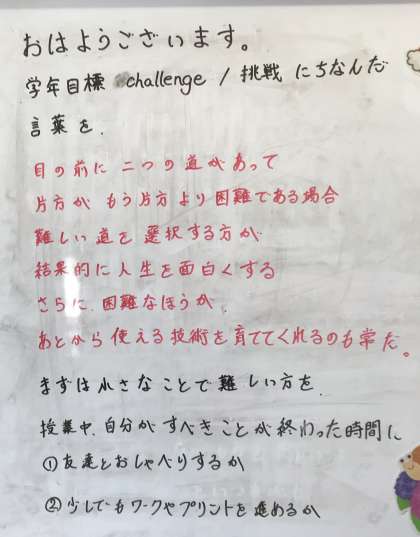 おはようございます。
学年目標 challenge / 挑戦 にちなんだ
言葉を、
目の前に 二つの道があって
片方が もう片方より困難である場合
難しい道を選択する方が
結果的に人生を面白くする
さらに、困難なほうが、
あとから使える技術を育ててくれるのも常だ。
まずは小さなことで難しい方を、
授業中、自分がすべきことが終わった時間に
①友達とおしゃべりするか
②少しでもワークやプリントを進めるか